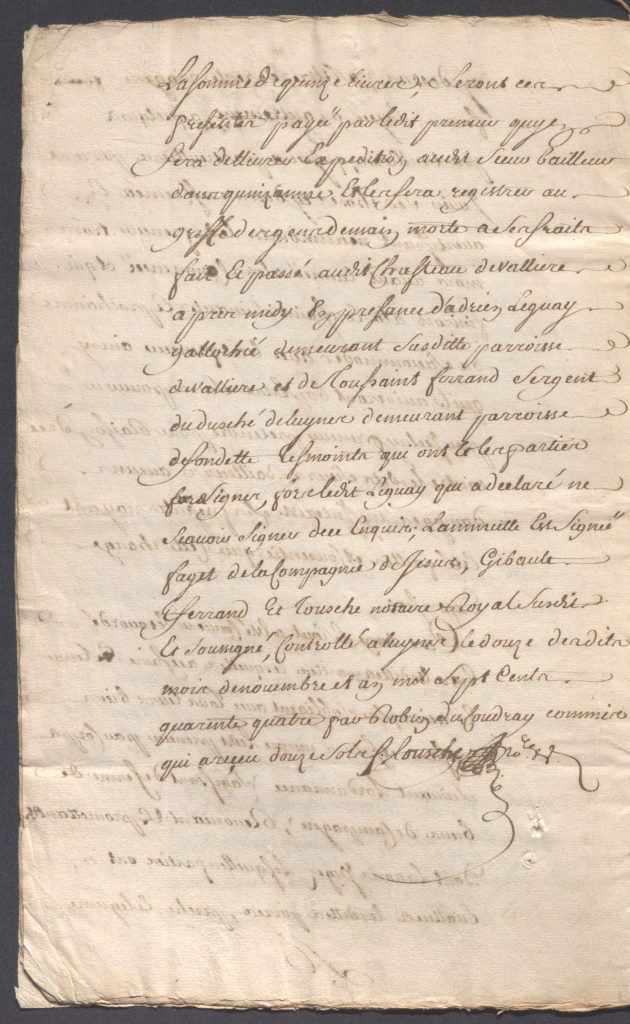 La somme de quinze livres Seront ces
presentes payé par ledit preneur quy en
fera dellivrer Expedition audit Sieur bailleur
dans quinzaine Et les fera registrer au
greffe des gens demain morte a ses fraits
fait Et passé audit Chasteau de Valliere
apres midy En presance d'adrien Leguay
demeurant Susditte parroisse
de valliere et de Toussaint ferrand Sergent
du duché de luynes demeurant parroisse
de fondette tesmoints qui ont Et les partier
signer, fors ledit Leguay qui a declaré ne
Sçavoir Signer de ce Enquis; Laminutte Est Signée
faget de la Compagnie de Jesus, Gibault
ferrand Et Tousche notaire Royal Susdit
Et Soussigné, Controllé a luynes le douze desdits
mois de novembre et an mil Sept Cents
quarente quatre par Robin du Coudray commis
qui a reçeu douze Sols Tousche